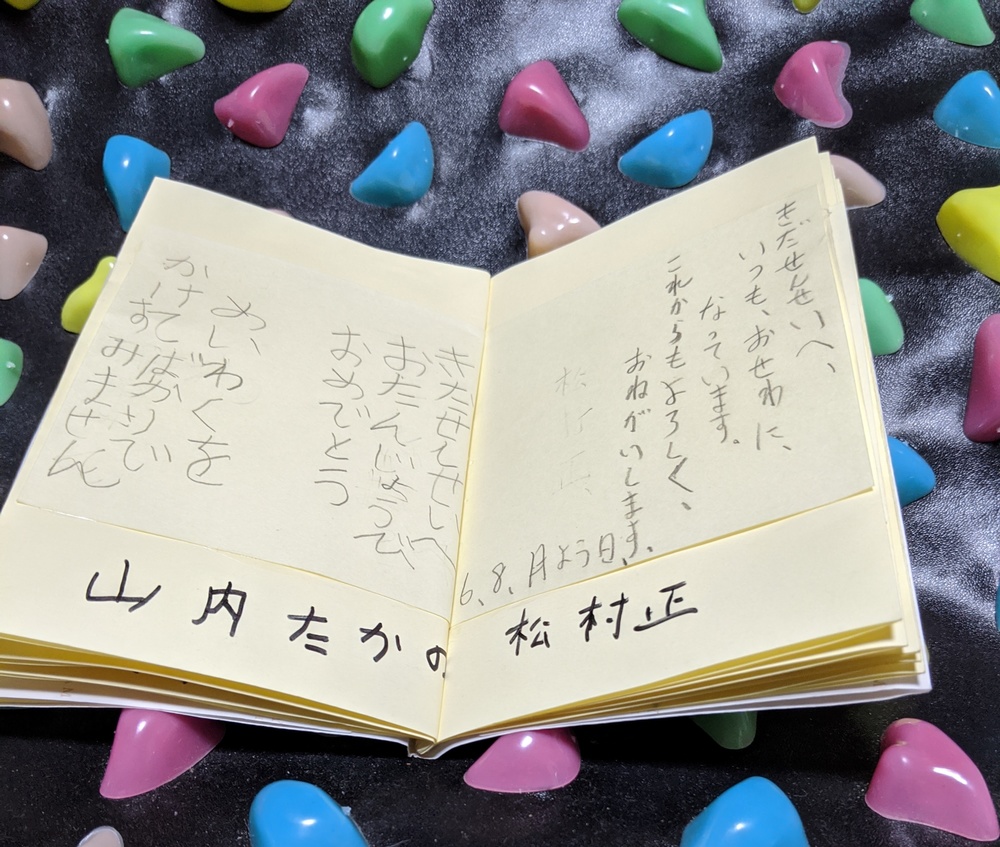 きだせんせいへ、
いつも、おせわに、
なっています。
これからもよろしく、
おねがいします。
6、8、月よう日、
松村正
松村正
きだせんせいへ
おたんじょうで
おめでとう
めいわくを
かけてばかりい
すみません
山内たかの